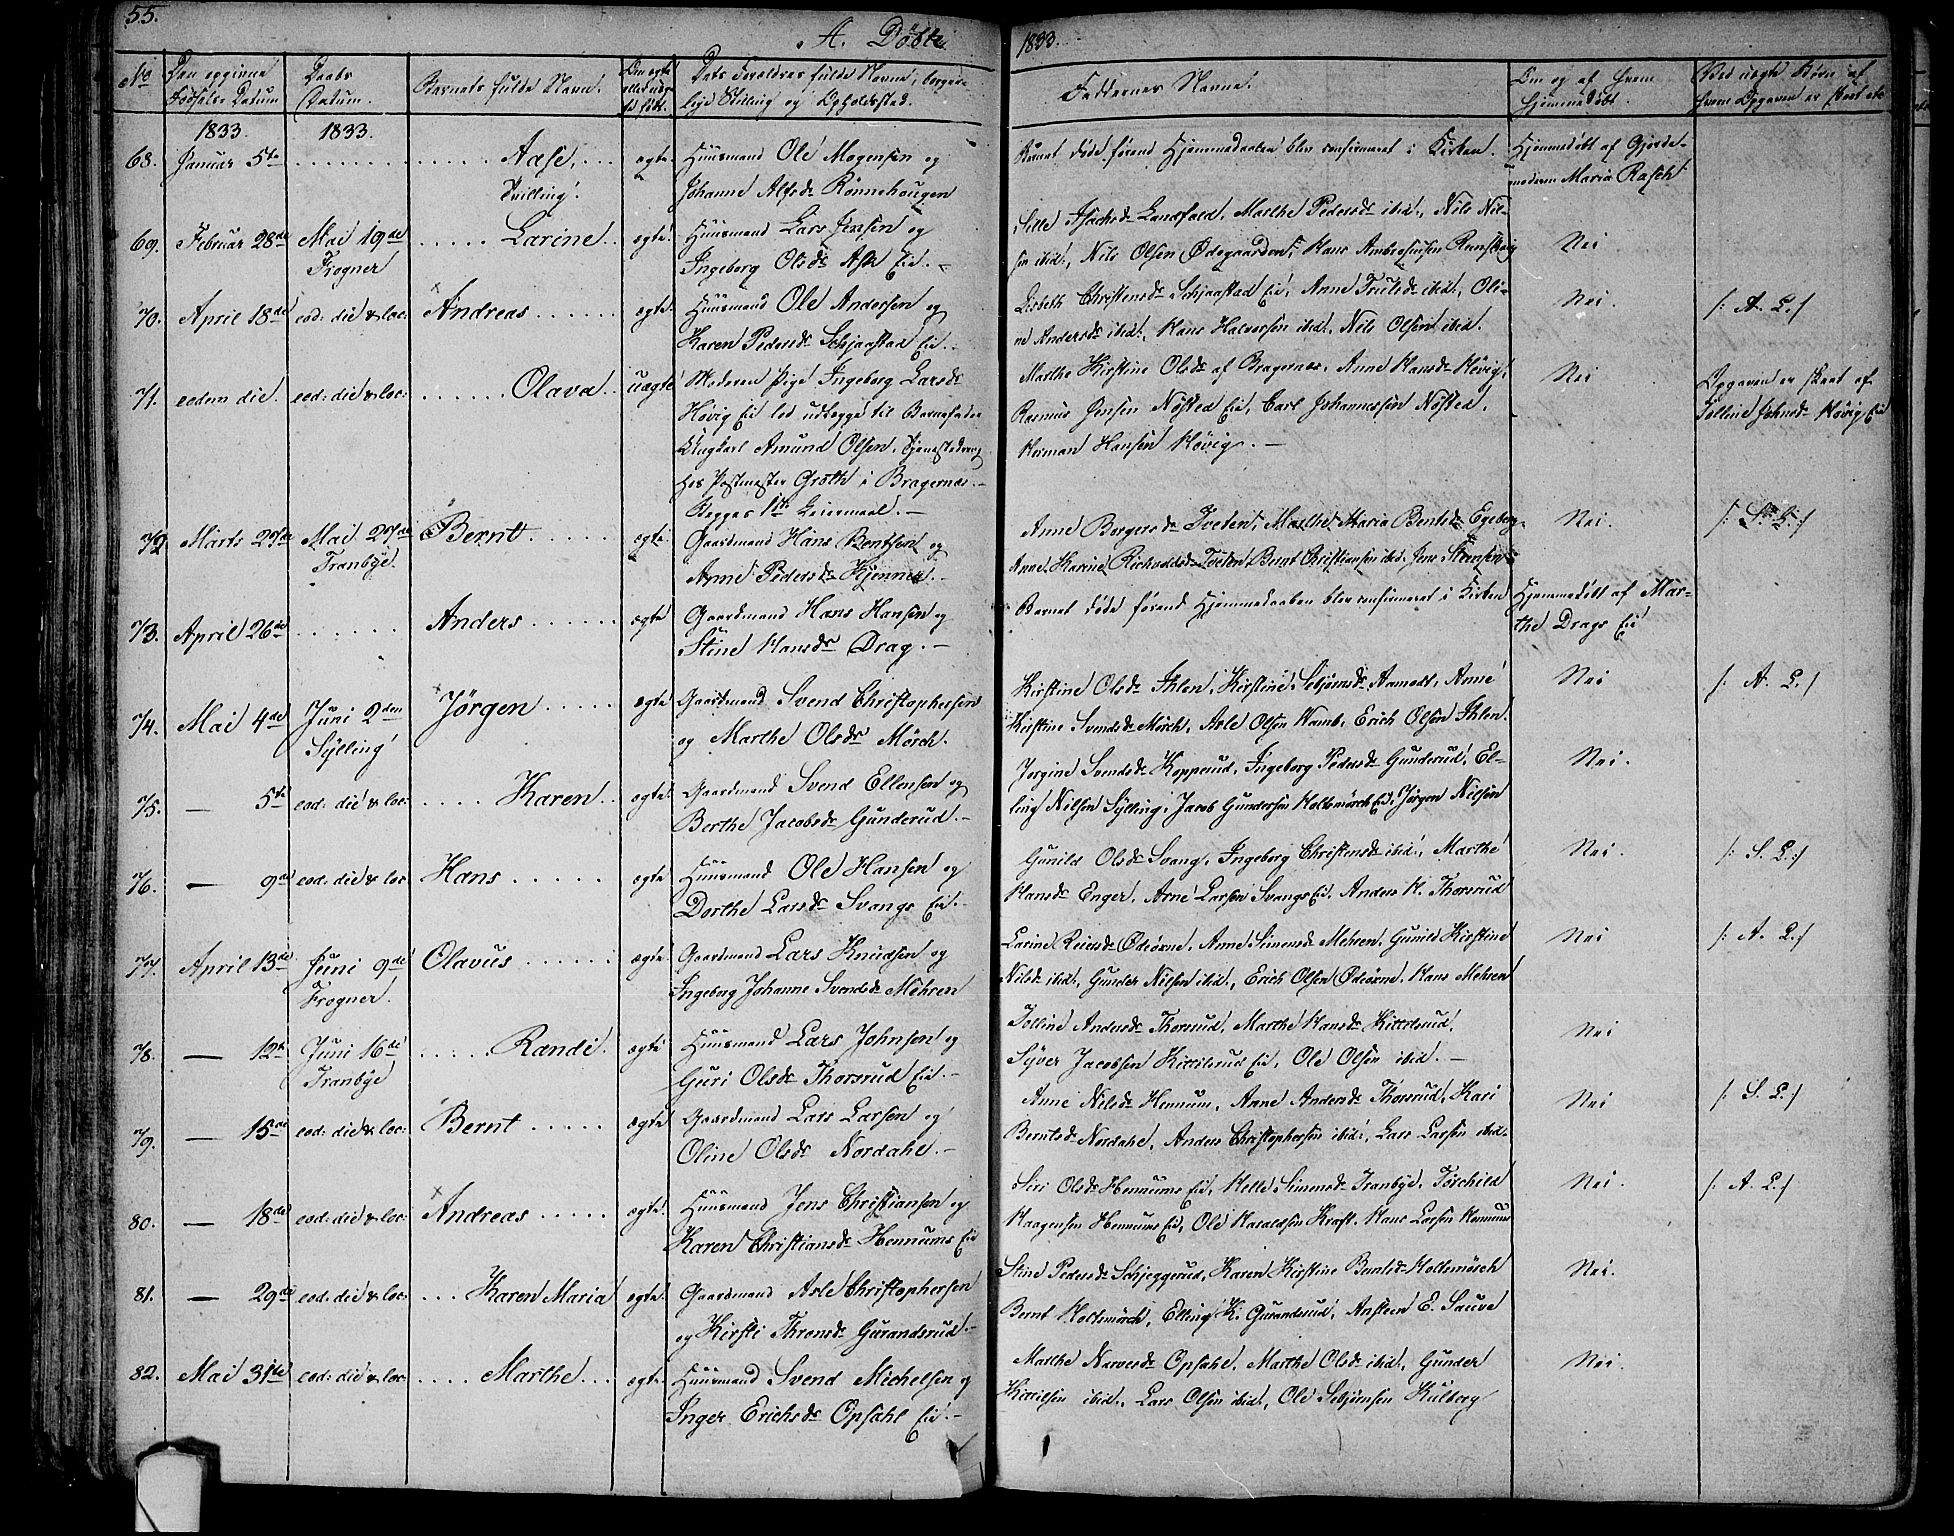 55.
A. Döbte
1833.
No
Den opginne Födsels Datum
Daabs Datum.
Barnets fulde Navn.
Om ægte eller uægte födt.
Dets Forældres fulde Navne, borgerlige Stilling og Opholdssted.
Faddernes Navne.
Om og af hvem hjemmedöbt.
Ved uægte Börn af hvem Opgaven er skeet etc
1833. 1833.
68. Januar 5te Aase, Tvilling. ægte. Huusmand Ole Mogensen og
Johanne Alfsdr Rönnehougen
Barnet döde förend Hjemmedaaben blev confirmeret i Kirken. Hjemmedöbt af Gjorde-
moderen Maria Rasch
69. Februar 28de Mai 19de Frogner Larine ægte. Huusmand Lars Jensen og
Ingeborg Olsdr Ask Eie.
Sille Isachsdr Landfald, Marthe Pedersdr ibid., Nils Nil-
sen ibid., Nils Olsen Ödegaarden, Hans Ambrosiusen
Nei
70. April 18de eod: die & loc: Andreas ægte. Huusmand Ole Andersen og
Karen Pedersdr Schjaastad Eie.
Lisbeth Christensdr Schjaastad Eie, Anne Trulsdr ibid., Oli-
ne Andersdr ibid., Hans Halvorsen ibid., Nils Olsen ibid.
Nei. /: A. L. /
71. eodem die. eod: die & loc: Olava uægte Moderen Pige Ingeborg Larsdr
Hövig Eie lod udlægge til Barnefader
Ungkarl Amund Olsen, Tjenestedreng
hos Postmester Groth i Bragernæs.
Begges 1ste Leiermaal.
Marthe Kirstine Olsdr af Bragernæs, Anne Hansdr Hövig,
Rasmus Jensen Nösted Eie, Carl Johannessen Nösted,
Herman Hansen Hövig.
Nei Opgaven er skeet af
Tolline Johnsdr Hövig Eie
72 Marts 27de Mai 27de Tranbye. Bernt ægte. Gaardmand Hans Bentsen og
Anne Pedersdr Kjenner.
Anne Borgersdr Tveten, Marthe Maria Bentsdr Egeberg,
Anne Karine Richvoldsdr Tveten, Bernt Christiansen ibid. Jens Steensen
Nei. /: S. L: /
73. April 26de Anders ægte Gaardmand Hans Hansen og
Stine Hansdr Drag.
Barnet döde förend Hjemmedaaben blev confirmeret i Kirken Hjemmedöbt af Mar-
the Drags Eie
74. Mai 4de Juni 2den Sylling Jörgen ægte Gaardmand Svend Christophersen
og Marthe Olsdr Mörch.
Kirstine Olsdr Ihlen, Kirstine Sebjörnsdr Aamodt, Anne
Kirstine Svendsdr Mörch, Arle Olsen Kamb, Erich Olsen Ihlen.
Nei /: A. L. /
75. — 5te eod: die & loc: Karen ægte. Gaardmand Svend Ellensen og
Berthe Jacobsdr Gunderud.
Jorgine Svendsdr Kopperud, Ingeborg Pedersdr Gunderud, El-
ling Nilsen Sylling, Jacob Gundersen Holtsmörch Eie, Jörgen Nilsen
Nei.
76. — 9de eod: die & loc: Hans ægte Huusmand Ole Hansen og
Dorthe Larsdr Svangs Eie.
Gunild Olsdr Svang, Ingeborg Christensdr ibid., Marthe
Hansdr Enger, Arne Larsen Svangs Eie, Anders H. Thorsrud
Nei. /: S. L: /
77. April 13de Juni 9de Frogner. Olavus ægte Gaardmand Lars Knudsen og
Ingeborg Johanne Svendsdr Mehren
Larine Reiersdr Ödeörne, Anne Simensdr Mehren, Gunild Kirstine
Nilsdr ibid., Gunder Nilsen ibid., Erich Olsen Ödeörne, Hans Mehren
Nei /: A. L. /
78. — 12te Juni 16de Tranbye Randi. ægte Huusmand Lars Johnsen og
Guri Olsdr Thorsrud Eie.
Tolline Andersdr Thorsrud, Marthe Hansdr Kittelsrud,
Syver Jacobsen Kittilsrud Eie, Ole Olsen ibid.
Nei
79. — 15de eod: die & loc: Bernt ægte Gaardmand Lars Larsen og
Oline Olsdr Nordahl.
Anne Nilsdr Hennum, Anne Andersdr Thorsrud, Kari
Berntsdr Nordahl, Anders Christophersen ibid., Lars Larsen ibid.
Nei /: S. L. /
80. — 18de eod: die & loc: Andreas ægte. Huusmand Jens Christiansen og
Karen Christiansdr Hennums Eie
Siri Olsdr Hennums Eie, Helle Simensdr Tranbye, Torchild
Haagensen Hennums Eie, Ole Haraldsen Kraft, Hans Larsen Hennum
Nei. /: A. L. /
81. — 29de eod: die & loc: Karen Maria ægte. Gaardmand Arle Christophersen
og Kirsti Thronsdr Gurandsrud.
Stine Pedersdr Schjeggerud, Karen Kirstine Berntsdr Holtsmörch
Bernt Holtsmörch, Elling K. Gurandsrud, Ansteen E. Sauve
Nei.
82. Mai 31te eod: die & loc: Marthe ægte. Huusmand Svend Michelsen og
Inger Erichsdr Opsahl Eie.
Marthe Narvesdr Opsahl, Marthe Olsdr ibid., Gunder
Kittilsen ibid., Lars Olsen ibid., Ole Sebjörnsen Kulberg
Nei.